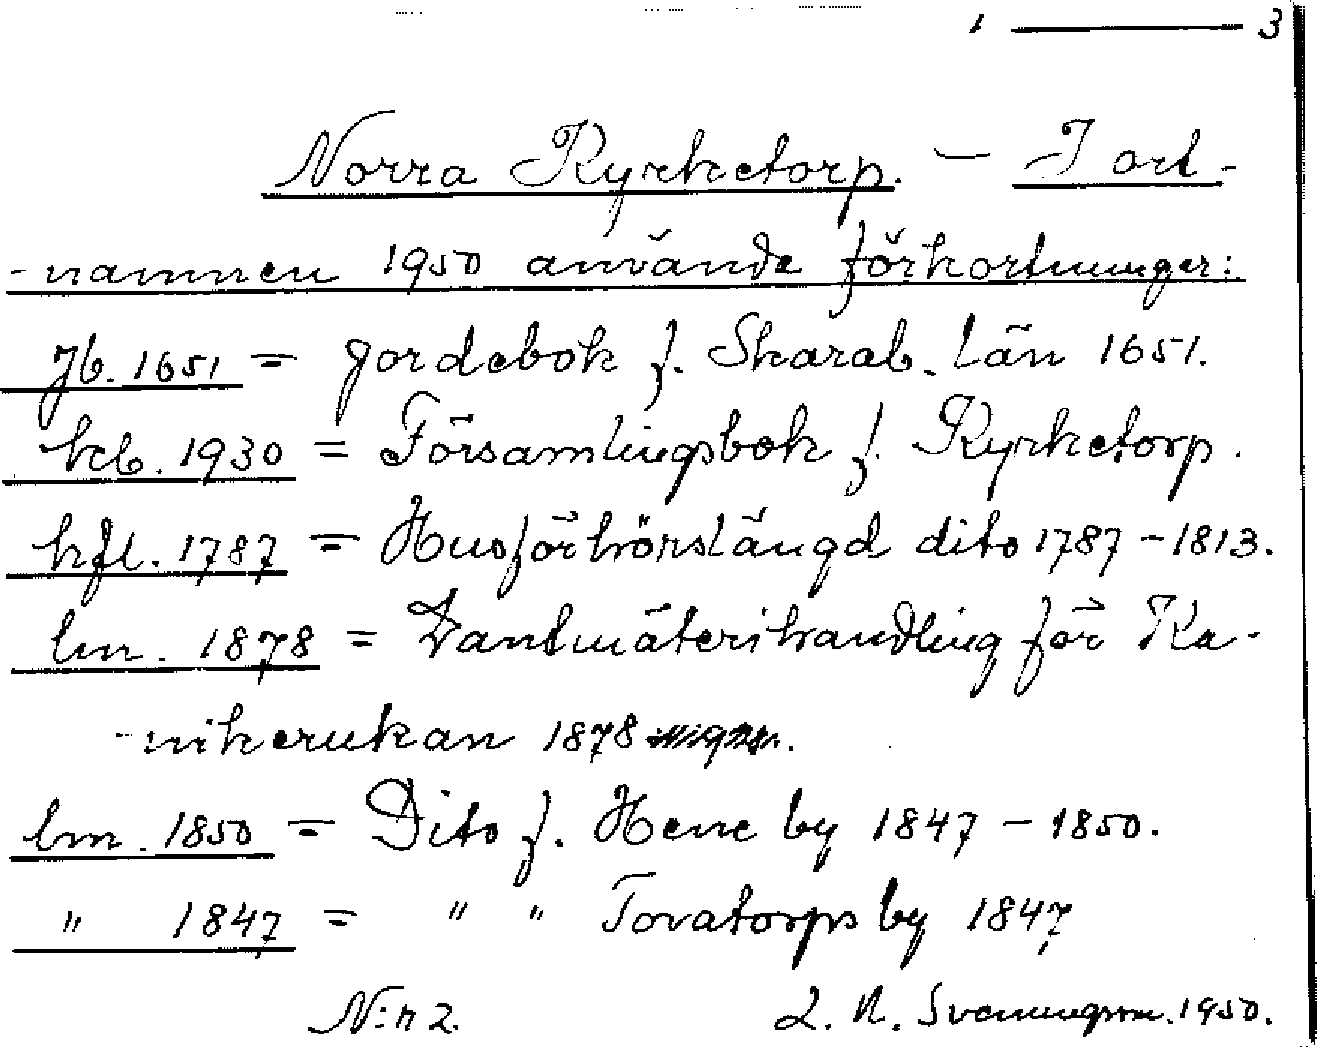 1 — 3
Norra Kyrketorp. — I ort-
-namnen 1950 använda förkortningar:
Jb. 1651 = Jordebok f. Skarab. län 1651.
kcb. 1930 = Församlingsbok f. Kyrketorp.
hfl. 1787 = Husförhörslängd dito 1787-1813.
lm. 1878 = Lantmäterihandling för Ka-
-nikerukan 1878
lm. 1850 = Dito f. Hene by 1847-1850.
" 1847 = " " Tovatorps by 1847
N:r 2. L. N. Svenungsson. 1950.